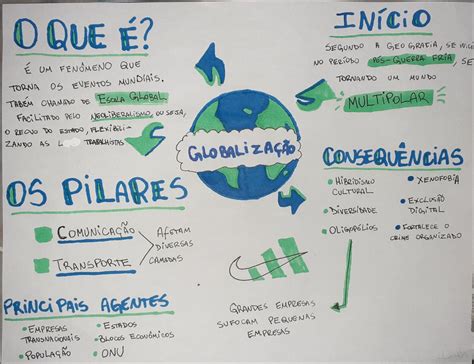 O QUE É?
É UM FENÔMENO QUE
TORNA OS EVENTOS MUNDIAIS.
TABÉM CHAMADO DE ESCALA GLOBAL
FACILITADO PELO NEOLIBERALISMO, OU SEJA,
O RECUO DO ESTADO, FLEXIBILI-
ZANDO AS TRABALHISTAS
INÍCIO
SEGUNDO A GEOGRAFIA, SE
NO PERÍODO PÓS-GUERRA FRIA, SE
TORNANDO UM MUNDO
MULTIPOLAR
GLOBALIZAÇÃO
OS PILARES
COMUNICAÇÃO
TRANSPORTE
AFETAM
DIVERSAS
CAMADAS
CONSEQUÊNCIAS
• HIBRIDISMO
CULTURAL
• DIVERSIDADE
• OLIGOPÓLIOS
• XENOFOBIA
• EXCLUSÃO
DIGITAL
• FORTALECE O
CRIME ORGANIZADO
GRANDES EMPRESAS
SUFOCAM PEQUENAS
EMPRESAS
PRINCIPAIS AGENTES
• EMPRESAS
TRANSNACIONAIS
• POPULAÇÃO
• ESTADOS
• BLOCOS ECONÔMICOS
• ONU